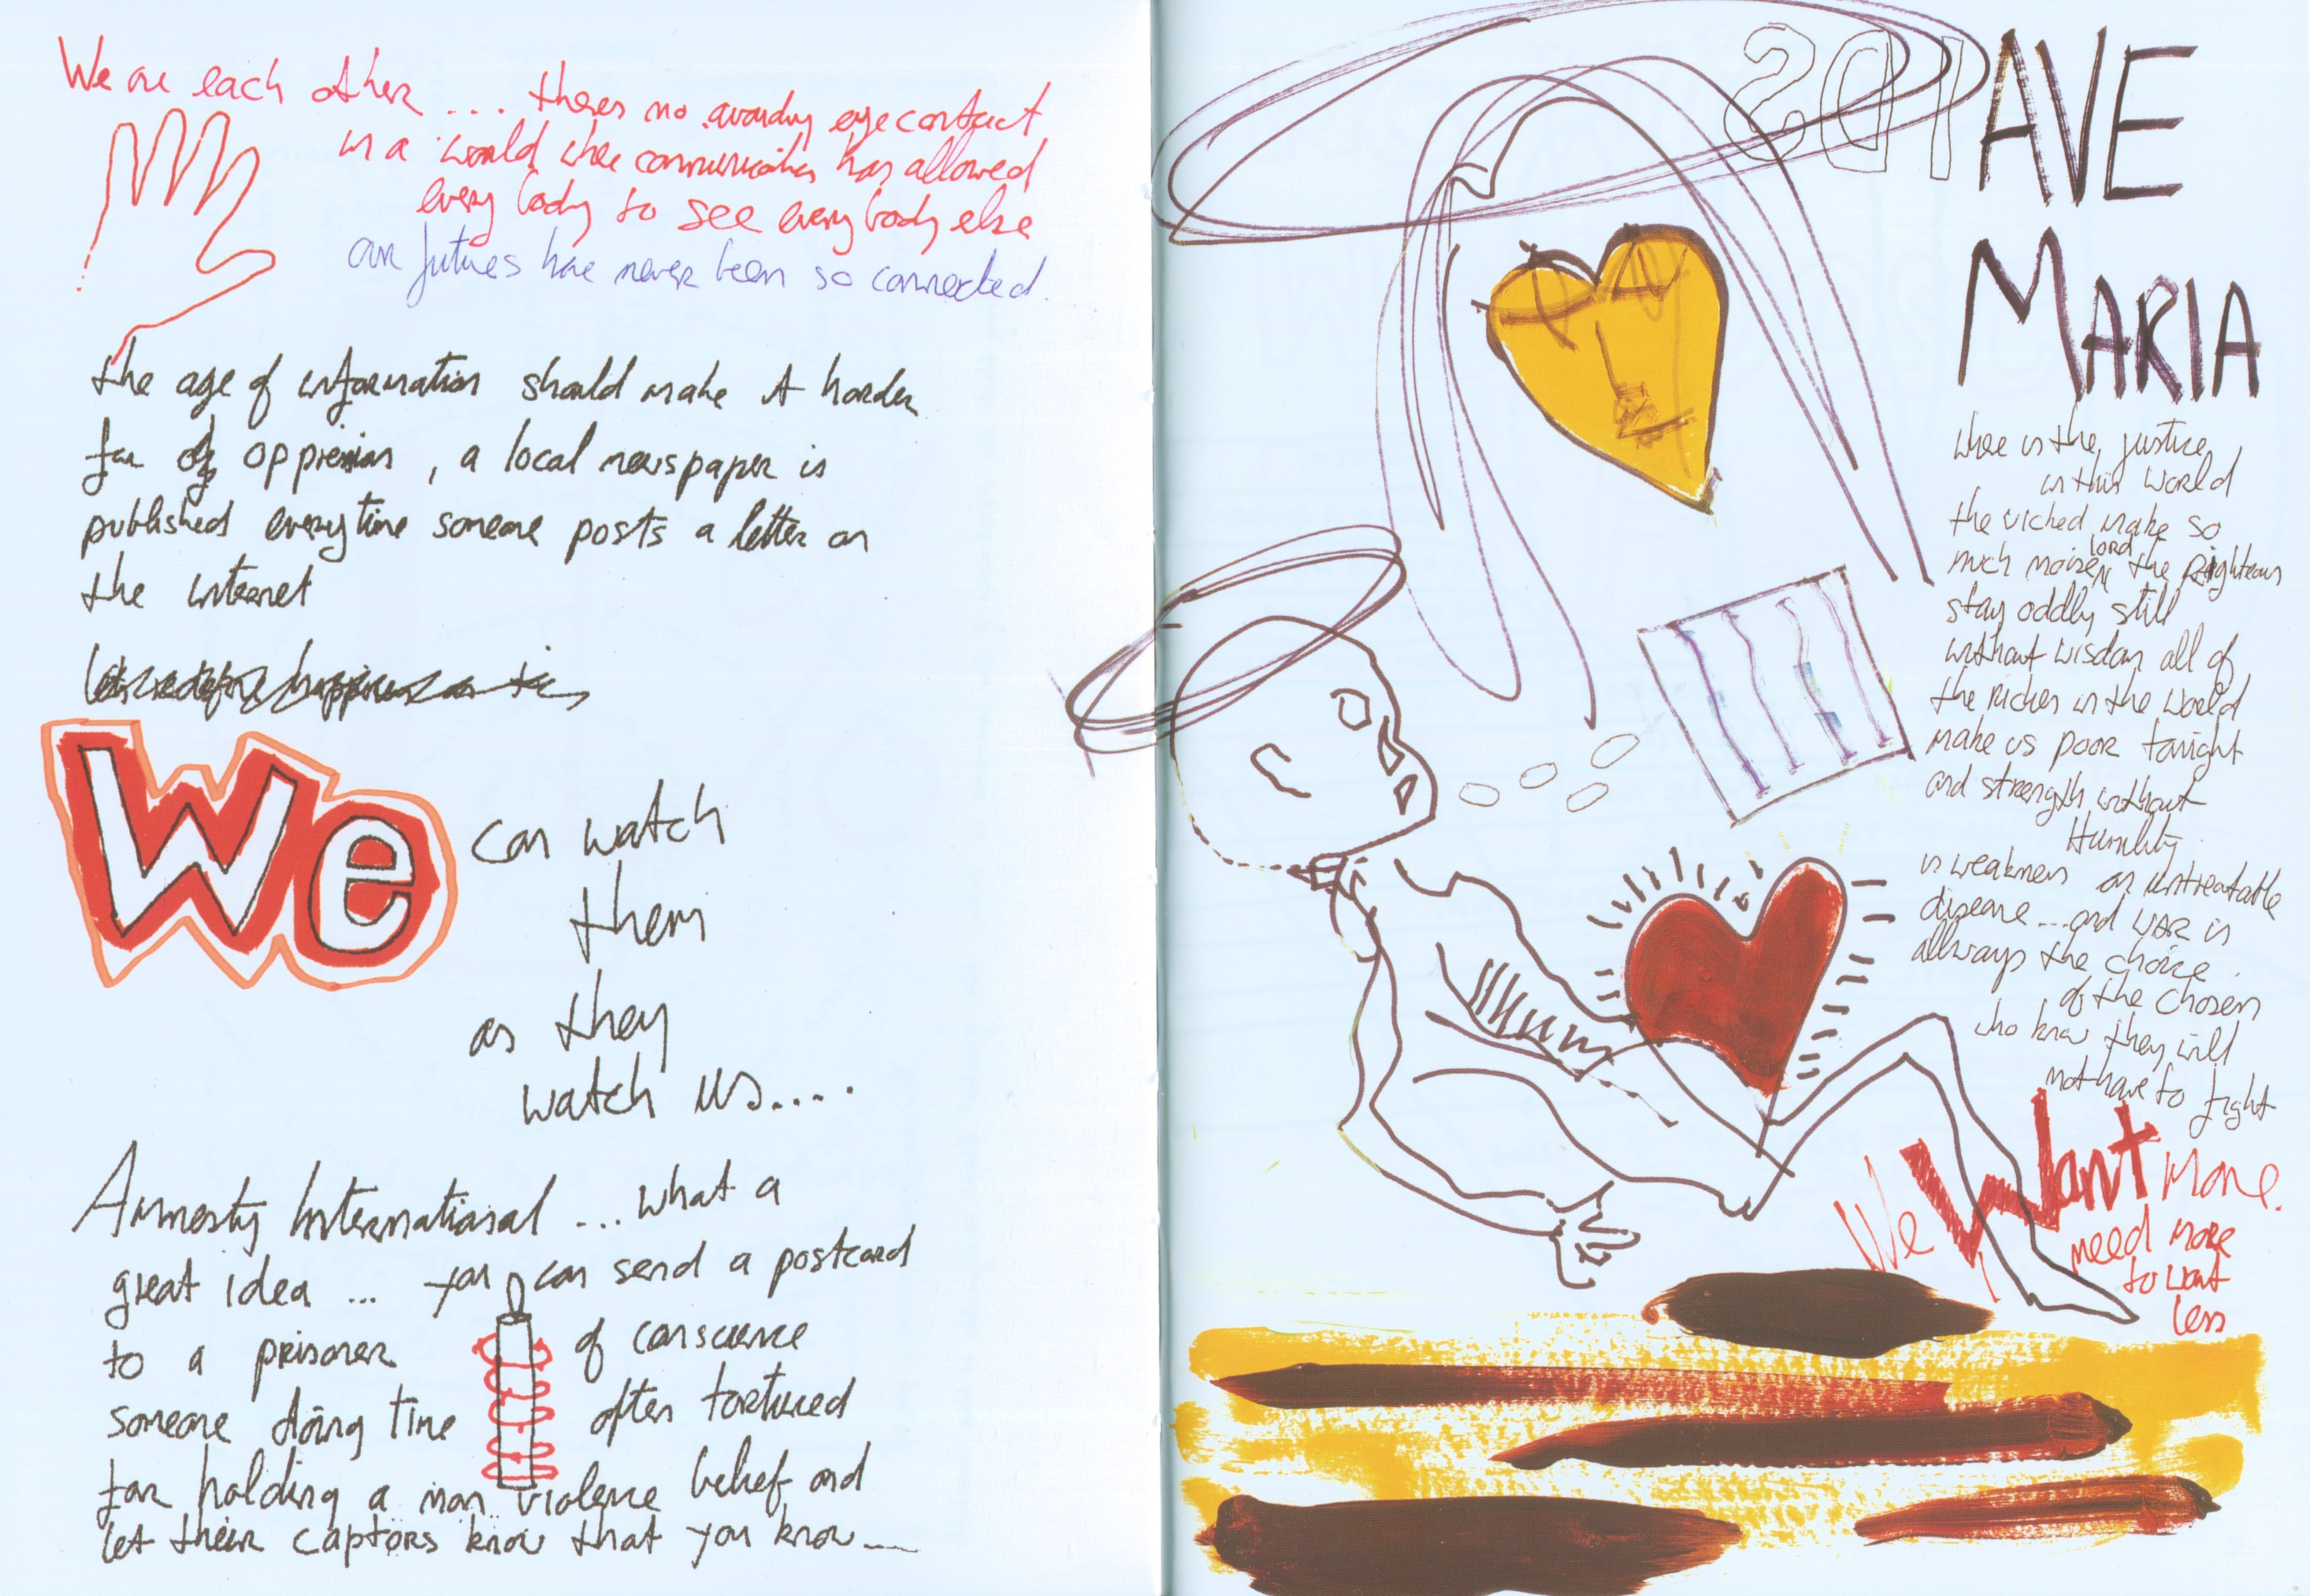 We are each other ... theres no avoiding eye contact
in a world where communication has allowed
every body to see every body else
our futures have never been so connected.
the age of information should make it harder
for of oppression, a local newspaper is
published everytime someone posts a letter on
the internet
We can watch
them
as they
watch us.....
Amnesty International ... what a
great idea ... you can send a postcard
to a prisoner of conscience
someone doing time often tortured
for holding a non violence belief and
let their captors know that you know....
SDI
AVE
MARIA
where is the justice
in this world
the wicked make so
much noise lord the righteous
stay oddly still
without wisdom all of
the riches in the world
make us poor tonight
and strength without
Humility
is weakness an untreatable
disease ... and war is
allways the choice
of the chosen
who know they will
not have to fight
We Want More.
need more
to want
less